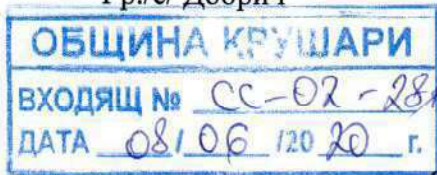 Гр./с/ Добрич
ОБЩИНА КРУШАРИ
ВХОДЯЩ № СС-02-28
ДАТА 08/ 06 /20 20 г.